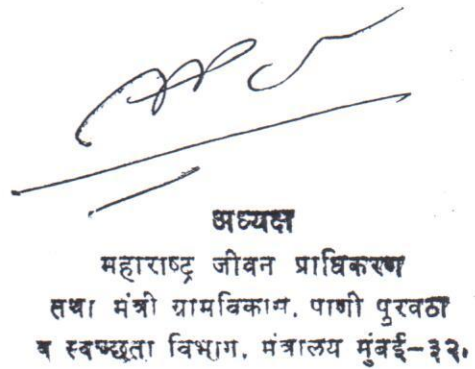 अध्यक्ष
महाराष्ट्र जीवन प्राधिकरण
तथा मंत्री ग्रामविकास, पाणी पुरवठा
व स्वच्छता विभाग, मंत्रालय मुंबई-३२.